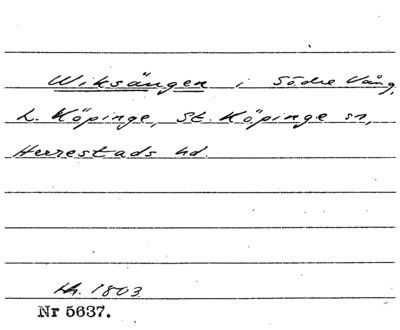 Wiksängen i Södre Vång,
L. Köpinge, St. Köpinge sn,
Herrestads hd.
Lh. 1803
Nr 5637.